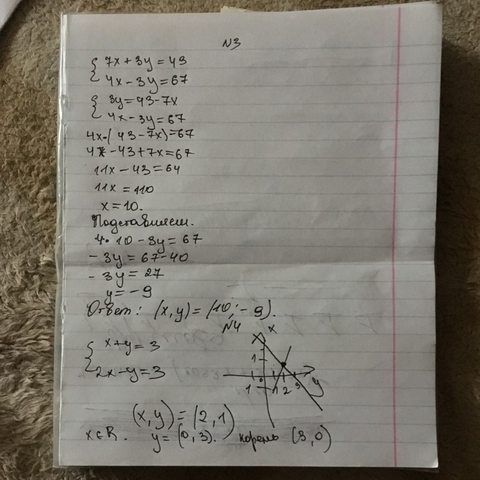 N3
7x + 3y = 43
4x - 3y = 67
3y = 43 - 7x
4x - 3y = 67
4x - (43 - 7x) = 67
4x - 43 + 7x = 67
11x - 43 = 64
11x = 110
x = 10.
Подставляем.
4 • 10 - 3y = 67
- 3y = 67 - 40
- 3y = 27
y = - 9
Ответ: (x, y) = (10; - 9).
N4
x + y = 3
2x - y = 3
x
1
1 2 3
1
y
(x, y) = (2, 1)
x ∈ R. y = (0, 3). корень (3, 0)